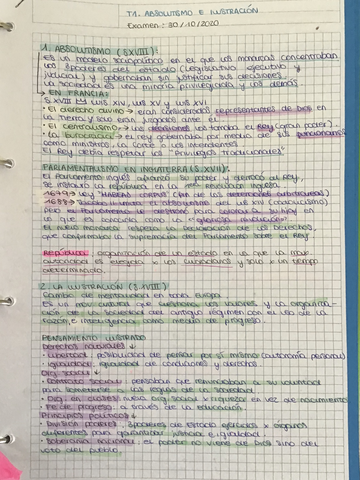 T1. ABSOLUTISMO E ILUSTRACIÓN
Examen: 30/10/2020
1. ABSOLUTISMO (S.XVIII):
Es un modelo sociopolítico en el que los monarcas concentraban
los 3 poderes del estado (legislativo ejecutivo y
judicial) y gobernaban sin justificar sus decisiones.
La sociedad es una minoría privilegiada y los demás.
→ EN FRANCIA:
S. XVII Luis XIV, Luis XV y Luis XVI
• El derecho divino → eran considerados representantes de Dios en
la tierra y solo eran juzgados ante él.
• El centralismo → las decisiones las tomaba el Rey (gran poder).
• La burocracia → el rey gobernaba por medio de sus funcionarios
como ministros, la corte o los intendentes.
El Rey debía respetar los "Privilegios Tradicionales"
PARLAMENTARISMO EN INGLATERRA (S.XVII):
El Parlamento inglés afianzó su poder y al Rey,
se instauró la república, en la 1ª Revolución inglesa.
1679 → ley "Habeas corpus" (fin de las detenciones arbitrarias)
1688 → el absolutismo del (catolicismo)
pero el Parlamento le destronó para a su hija en
lo que es conocido como la "gloriosa revolución"
El nuevo monarca respeta la Declaración de los Derechos,
que confirmaba la supremacía del Parlamento sobre el Rey
República: organización de un estado en la que la max
autoridad es elegida x los ciudadanos y solo x un tiempo
determinado.
2. LA ILUSTRACIÓN (S.XVIII)
Cambio de mentalidad en toda Europa.
Es un mov cultural que cuestiona los valores y la organiza-
ción de la sociedad del antiguo régimen con el uso de la
razón e inteligencia como medio de progreso.
PENSAMIENTO ILUSTRADO:
Derechos naturales ↓
• Libertad: posibilidad de pensar por sí mismo (autonomía personal)
• Igualdad: igualdad de condiciones y derechos.
Org. social ↓
• Contrato social: pensaban que renunciaban a su voluntad
para someterse a las reglas de la sociedad.
• Org. en clases: nueva org. social x riqueza en vez de nacimiento
• Fe de progreso: a través de la educación.
Principios políticos ↓
• División poderes: 3 poderes de estado ejercidos x órganos
diferentes para garantizar justicia e igualdad.
• Soberanía nacional: el poder no viene de Dios sino del
voto del pueblo.